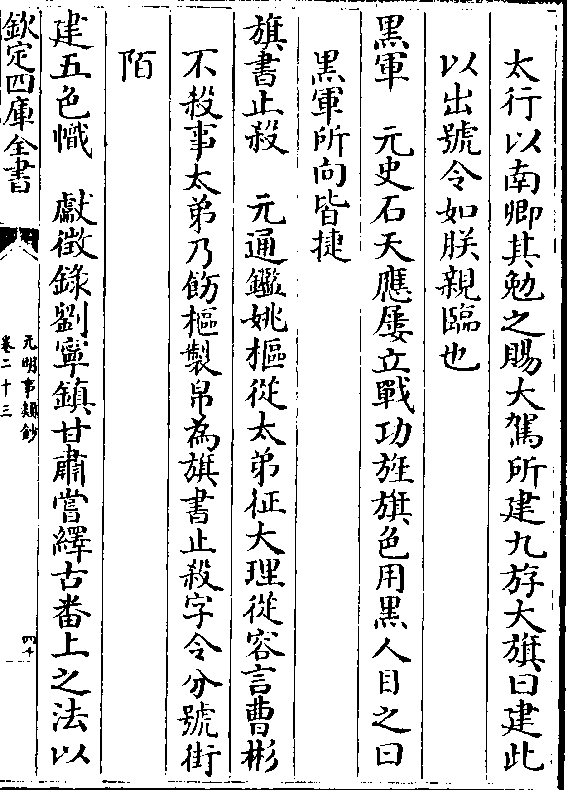 太行以南卿其勉之賜大駕所建九斿大旗曰建此
以出號令如朕親臨也
黑軍　元史石天應屢立戰功旌旗色用黑人目之曰
黑軍所向皆捷
旗書止殺　元通鑑姚樞從太弟征大理從容言曹彬
不殺事太弟乃飭樞製帛為旗書止殺字令分號街
陌
建五色幟　獻徵錄劉寧鎮甘肅嘗繹古畨上之法以
欽定四庫全書
元明事類鈔
卷二十三
四十